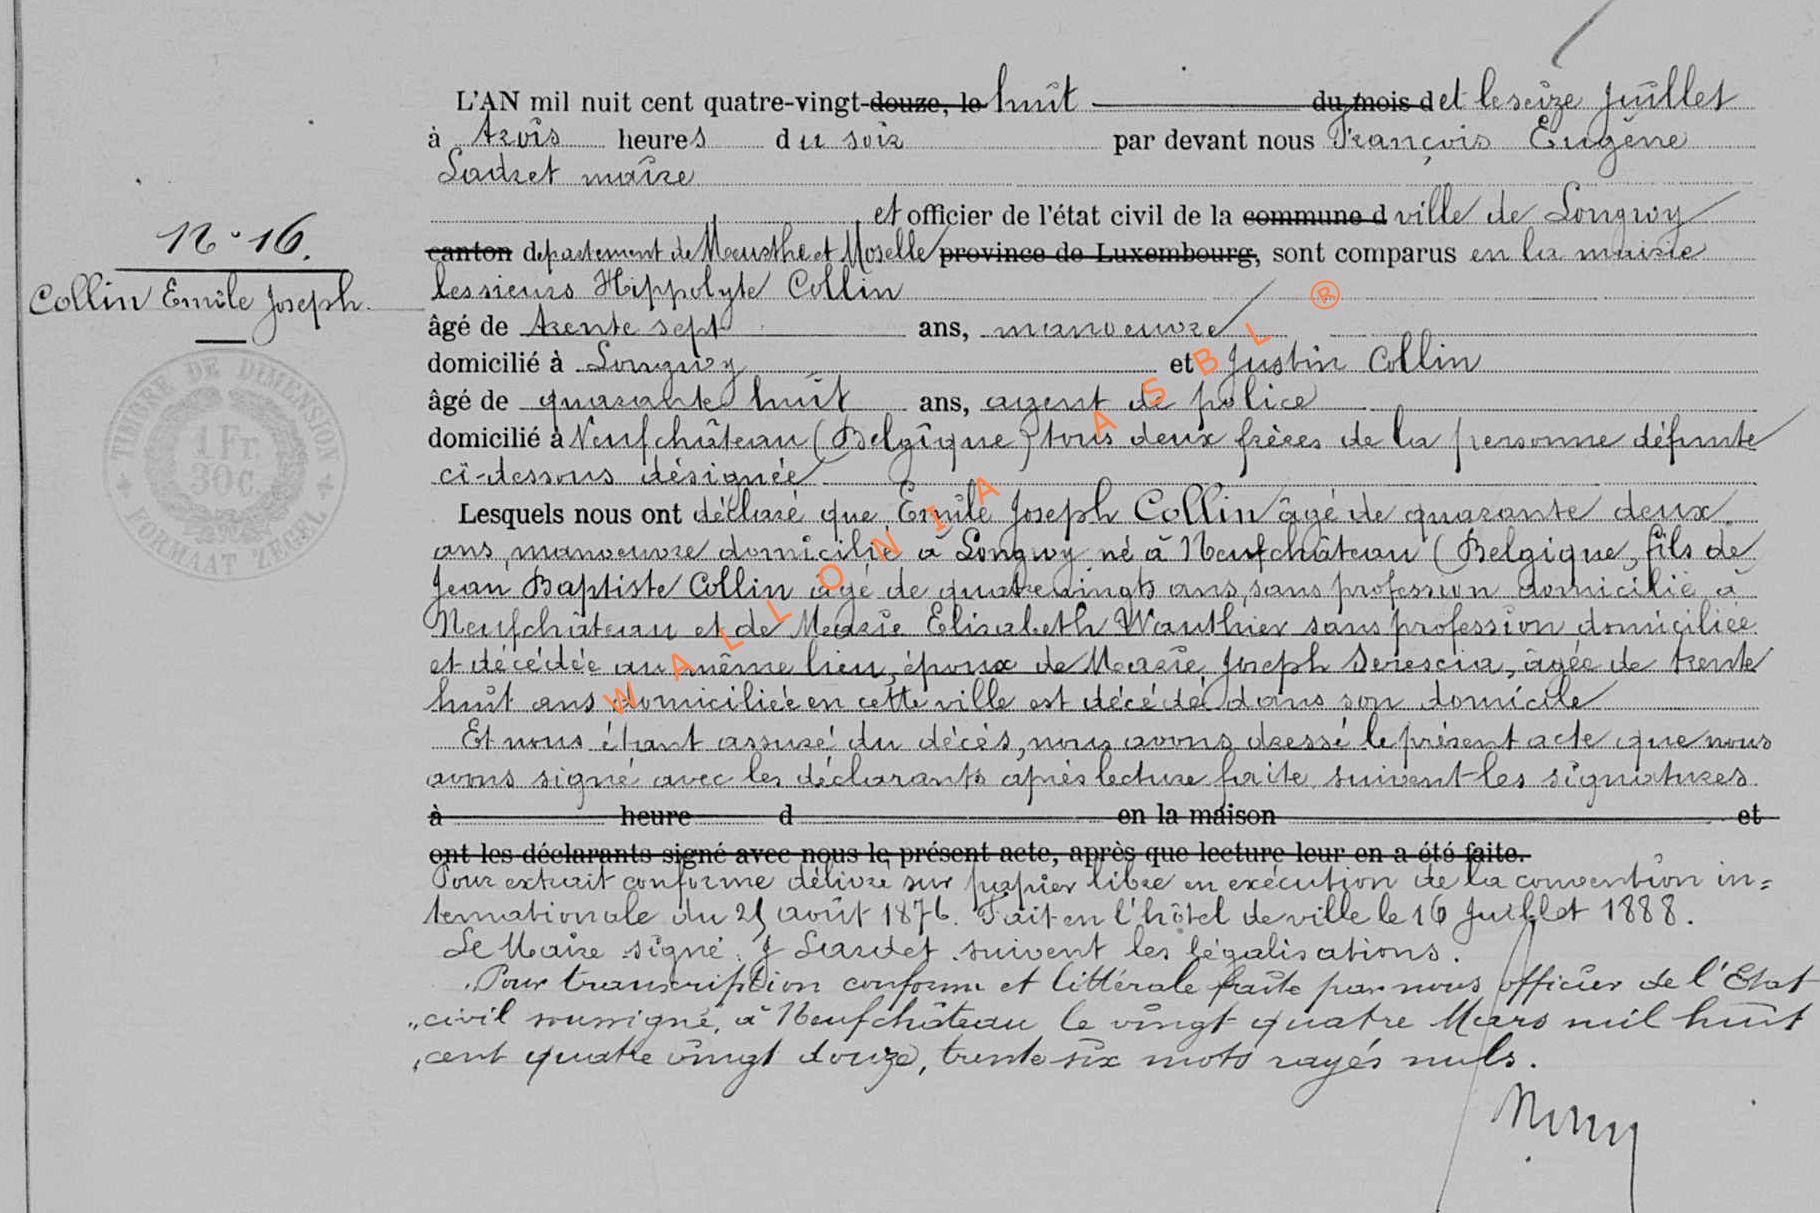 L'AN mil huit cent quatre-vingt-douze, le huit du mois d et le seize Juillet
à trois heures du soir par devant nous François Eugène
Ladret maire
et officier de l'état civil de la commune d ville de Longwy
canton departement de Meurthe et Moselle province de Luxembourg, sont comparus en la mairie
les sieurs Hippolyte Collin
N° 16.
Collin Emile Joseph.
âgé de trente sept ans, manoeuvre
domicilié à Longwy et Justin Collin
âgé de quarante huit ans, agent de police
domicilié à Neufchâteau (Belgique) tous deux frères de la personne défunte
ci-dessous désignée
TIMBRE DE DIMENSION
1 Fr.
30 C.
FORMAAT ZEGEL
Lesquels nous ont déclaré que Emile Joseph Collin âgé de quarante deux
ans, manoeuvre domicilié à Longwy né à Neufchâteau (Belgique, fils de
Jean Baptiste Collin âgé de quatrevingts ans, sans profession domicilié à
Neufchâteau et de Marie Elisabeth Wauthier sans profession domiciliée
et décédée au même lieu, époux de Marie Joseph, âgée de trente
huit ans domiciliée en cette ville est décédé dans son domicile
Et nous étant assuré du décès, nous avons dressé le présent acte que nous
avons signé avec les déclarants après lecture faite, suivent les signatures
à heure d en la maison et
ont les déclarants signé avec nous le présent acte, après que lecture leur en a été faite.
Pour extrait conforme délivré sur papier libre en exécution de la convention in=
ternationale du 25 août 1876. Fait en l'hôtel de ville le 16 Juillet 1888.
Le Maire signé suivent les légalisations.
Pour transcription conforme et littérale faite par nous officier de l'Etat
civil soussigné, à Neufchâteau le vingt quatre Mars mil huit
cent quatre vingt douze, trente six mots rayés nuls.
WALLONIA ASBL ®